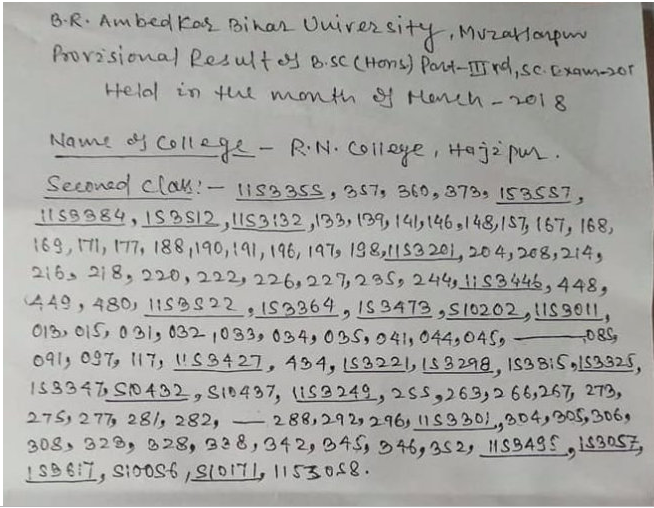 B.R. Ambedkar Bihar University, Muzaffarpur
Provisional Result of B.SC (Hons) Part-IIIrd, SC. Exam-201
Held in the month of March - 2018
Name of College - R.N. College, Hajipur.
Seconed Class:- 11S3355, 357, 360, 373, 1S3557,
11S3384, 1S3512, 11S3132, 133, 139, 141, 146, 148, 157, 167, 168,
169, 171, 177, 188, 190, 191, 196, 197, 198, 11S3201, 204, 208, 214,
216, 218, 220, 222, 226, 227, 235, 244, 11S3446, 448,
449, 480, 11S3522, 1S3364, 1S3473, S10202, 11S3011,
013, 015, 031, 032, 033, 034, 035, 041, 044, 045, — 085,
091, 097, 117, 11S3427, 434, 1S3221, 1S3298, 1S3315, 1S3325,
1S3347, S10432, S10437, 11S3249, 255, 263, 266, 267, 273,
275, 277, 281, 282, — 288, 292, 296, 11S3301, 304, 305, 306,
308, 323, 328, 338, 342, 345, 346, 352, 11S3495, 1S3057,
1S3617, S10056, S10171, 11S3058.